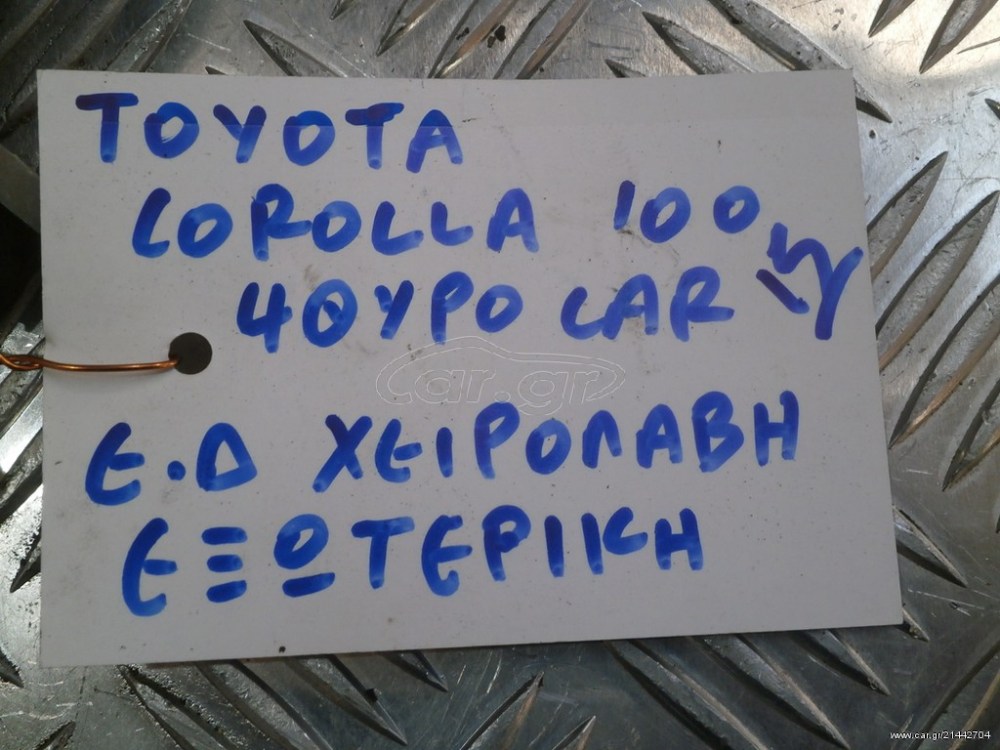 TOYOTA
COROLLA 100
4ΘΥΡΟ CAR
Ε.Δ ΧΕΙΡΟΛΑΒΗ
ΕΞΩΤΕΡΙΚΗ
car.gr
www.car.gr/21442704